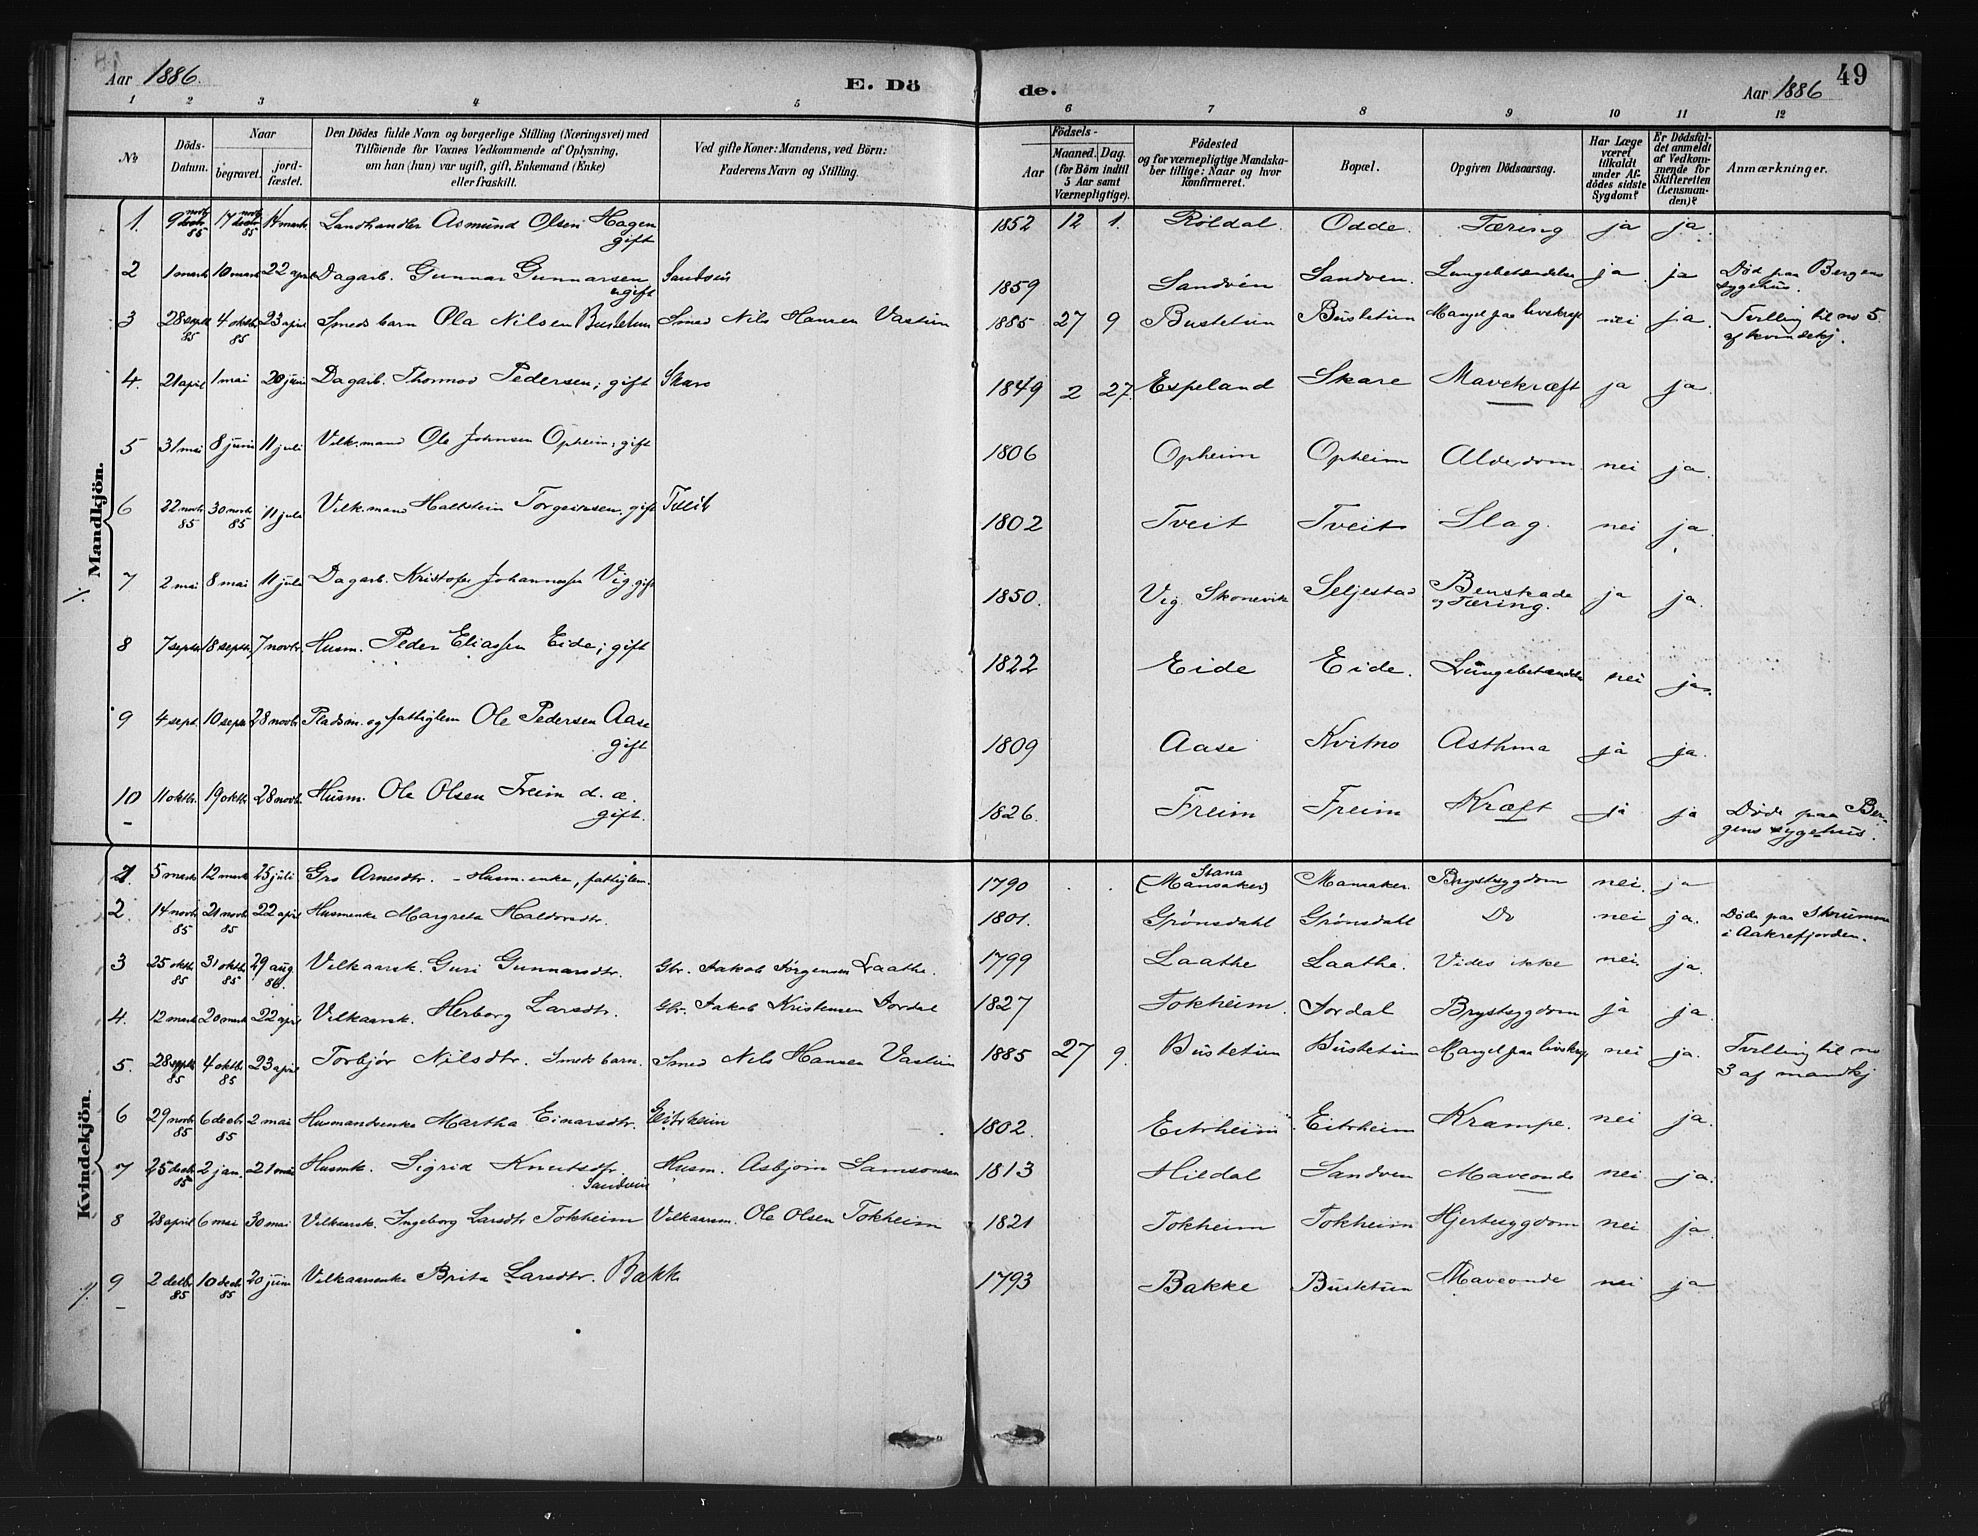 Aar 1886. E. Dö de. Aar 1886 49
1 2 3 4 5 6 7 8 9 10 11 12
No Döds-Datum. Naar begravet. jord-fæstet. Den Dödes fulde Navn og borgerlige Stilling (Næringsvei) med Tilföiende for Voxnes Vedkommende af Oplysning, om han (hun) var ugift, gift, Enkemand (Enke) eller fraskilt. Ved gifte Koner: Mandens, ved Börn: Faderens Navn og Stilling. Födsels- Aar Maaned. Dag. (for Börn indtil 5 Aar samt Værnepligtige). Födested og for værnepligtige Mandskaber tillige: Naar og hvor konfirmeret. Bopæl. Opgiven Dödsaarsag. Har Læge været tilkaldt under Afdödes sidste Sygdom? Er Dödsfaldet anmeldt af Vedkommende for Skifteretten (Lensmanden)? Anmærkninger.
Mandkjön.
1. 9 novb 85 17 novb 85 14 mark Landhandler Asmund Olsen Hagen gift 1852 12 1. Røldal. Odde. Tæring ja ja.
2 1 mark 10 mark 22 april Dagarb. Gunnar Gunnarsen ugift Sandvin 1859 Sandvén Sandven. Lungebetændelse ja ja Død paa Bergens sygehus.
3 28 sept 85 4 oktbr 85 23 april Smeds barn Ola Nilsen Bustetun Smed Nils Hansen Vastun 1885 27 9 Bustetun Bustetun Mangel paa livskraft nei ja. Tvilling til no 5. af kvindekj.
4. 21 april 1 mai 20 juni Dagarb. Thormod Pedersen; gift Skare 1849 2 27. Espeland Skare Mavekræft ja ja
5 31 mai 8 juni 11 juli Vilk.mand Ole Johnsen Opheim; gift 1806 Opheim Opheim Alderdom. nei ja.
6 22 novb 85 30 novb 85 11 juli Vilk.mand Haldstein Torgeirsen, gift Tveit 1802 Tveit Tveit Slag. nei ja.
7 2 mai 8 mai 11 juli Dagarb. Kristofer Johannessen Vig. gift 1850. Vig. Skonevik Seljestad Benskade og Tæring. ja ja.
8 7 septb 18 septb, 7 novbr. Husm. Peder Eliassen Eide; gift 1822 Eide Eide. Lungebetændelse nei ja.
9 4 sept. 10 septb 28 novbr. Pladsm. og fattiglem Ole Pedersen Aase gift 1809 Aase Kvitno Asthma ja ja.
10 11 oktbr. 19 oktbr. 28 novbr. Husm. Ole Olsen Freim d. æ. gift. 1826. Freim Freim Kræft ja ja Døde paa Bergens sygehus.
Kvindekjön.
1. 5 mark 12 mark 25 juli Gro Arnesdtr. - Husm.enke, fattiglem. 1790 Stana (Mansaker) Mansaker. Brystsygdom nei. ja
2. 14 novb 85 21 novb 85 22 april Husmenke Margreta Haldorsdtr. 1801. Grønsdahl Grønsdahl Do nei ja. Døde paa Skrumme i Aakrefjorden.
3 25 oktb 85 31 oktb 85 29 aug 86 Vilkaarsk. Guri Gunnarsdtr. Gbr. Jakob Jørgensen Laathe. 1799 Laathe Laathe. Vides ikke nei. ja.
4. 12 mark 20 mark 22 april Vilkaarsk. Herborg Larsdtr. Gbr. Jakob Kristensen Jordal 1827 Tokheim. Jordal Brystsygdom ja ja.
5. 28 septb 85 4 oktbr 85 23 april Torbjør Nilsdtr. Smeds barn. Smed Nils Hansen Vastun 1885 27 9. Bustetun Bustetun Mangel paa livskraft nei ja. Tvilling til no 3 af mandkj
6 29 novb 85 6 decbr 85 2 mai Husmandsenke Martha Einarsdtr. Eitrheim 1802. Eitrheim Eitrheim Krampe. nei ja.
7 25 decb 85 2 jan. 21 mai Husmk. Sigrid Knutsdtr. Sandvin Husm. Asbjørn Samsonsen 1813 Hildal Sandven Maveonde nei ja.
8 28 april 6 mai 30 mai Vilkaarsk. Ingeborg Larsdtr Tokheim Vilkaarsm. Ole Olsen Tokheim 1821 Tokheim Tokheim Hjertesygdom nei ja.
9 2 decbr. 85 10 decb 85 20 juni Vilkaarsenke Brita Larsdtr. Bakke 1793 Bakke Bustetun Maveonde nei ja